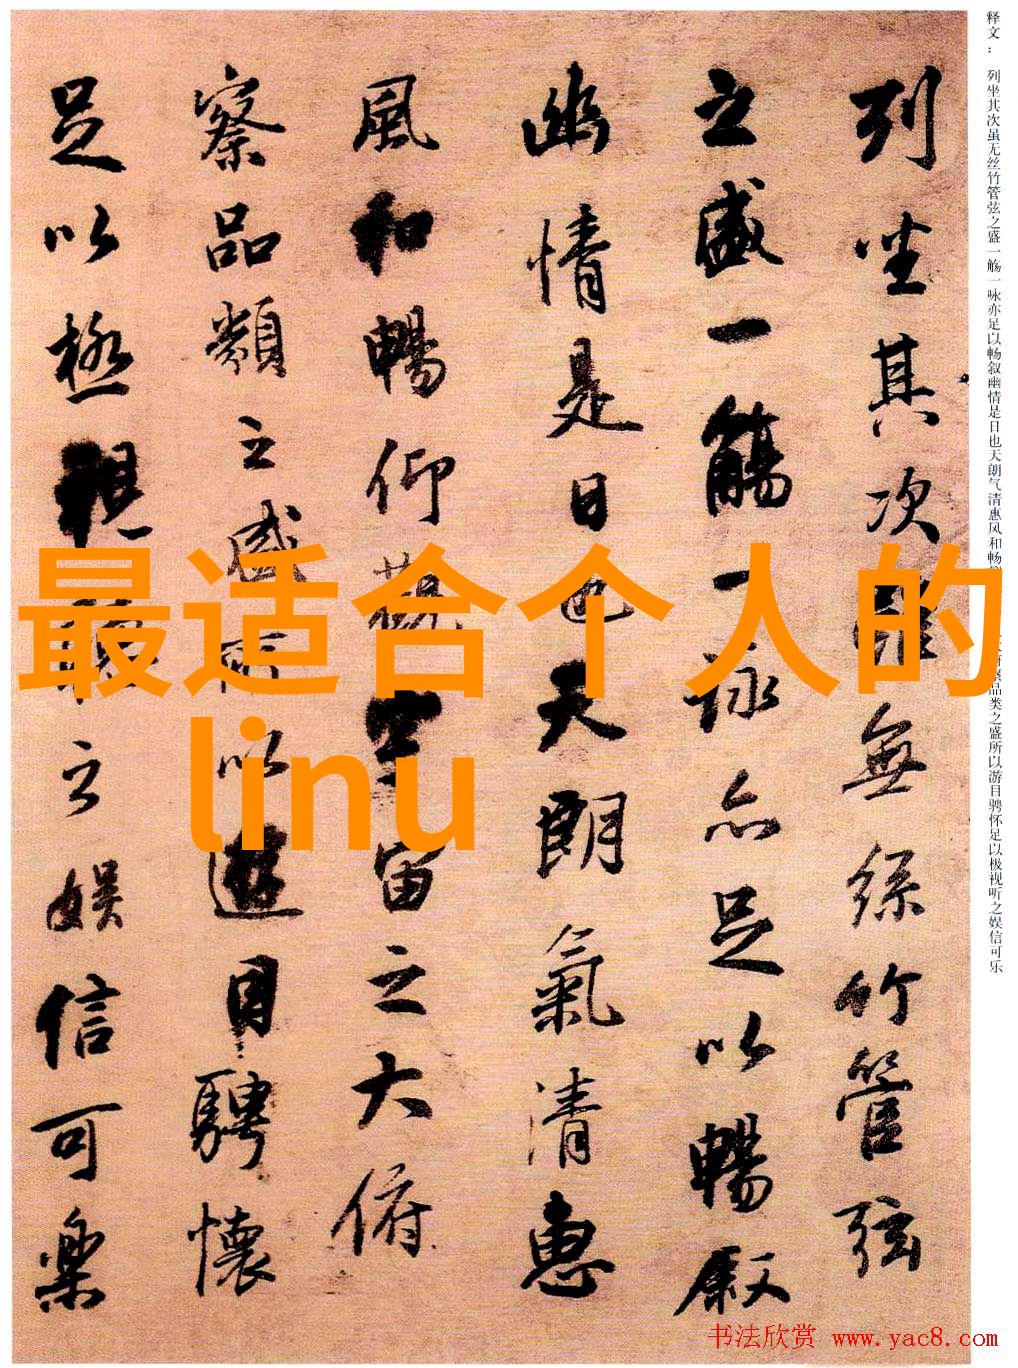 释文：列坐其次虽无丝竹管弦之盛一觞一咏亦足以畅叙幽情是日也天朗气清惠风和畅 品类之盛所以游目骋怀足以极视听之娱信可乐
列坐其次雖無絲竹管弦
之盛一觴一詠亦足以暢叙
幽情是日也天朗氣清惠
風和暢仰觀宇宙之大俯
察品類之盛所以遊目騁懷
足以極視聽之娛信可樂
最适合个人的
linu
书法欣赏 www.yac8.com